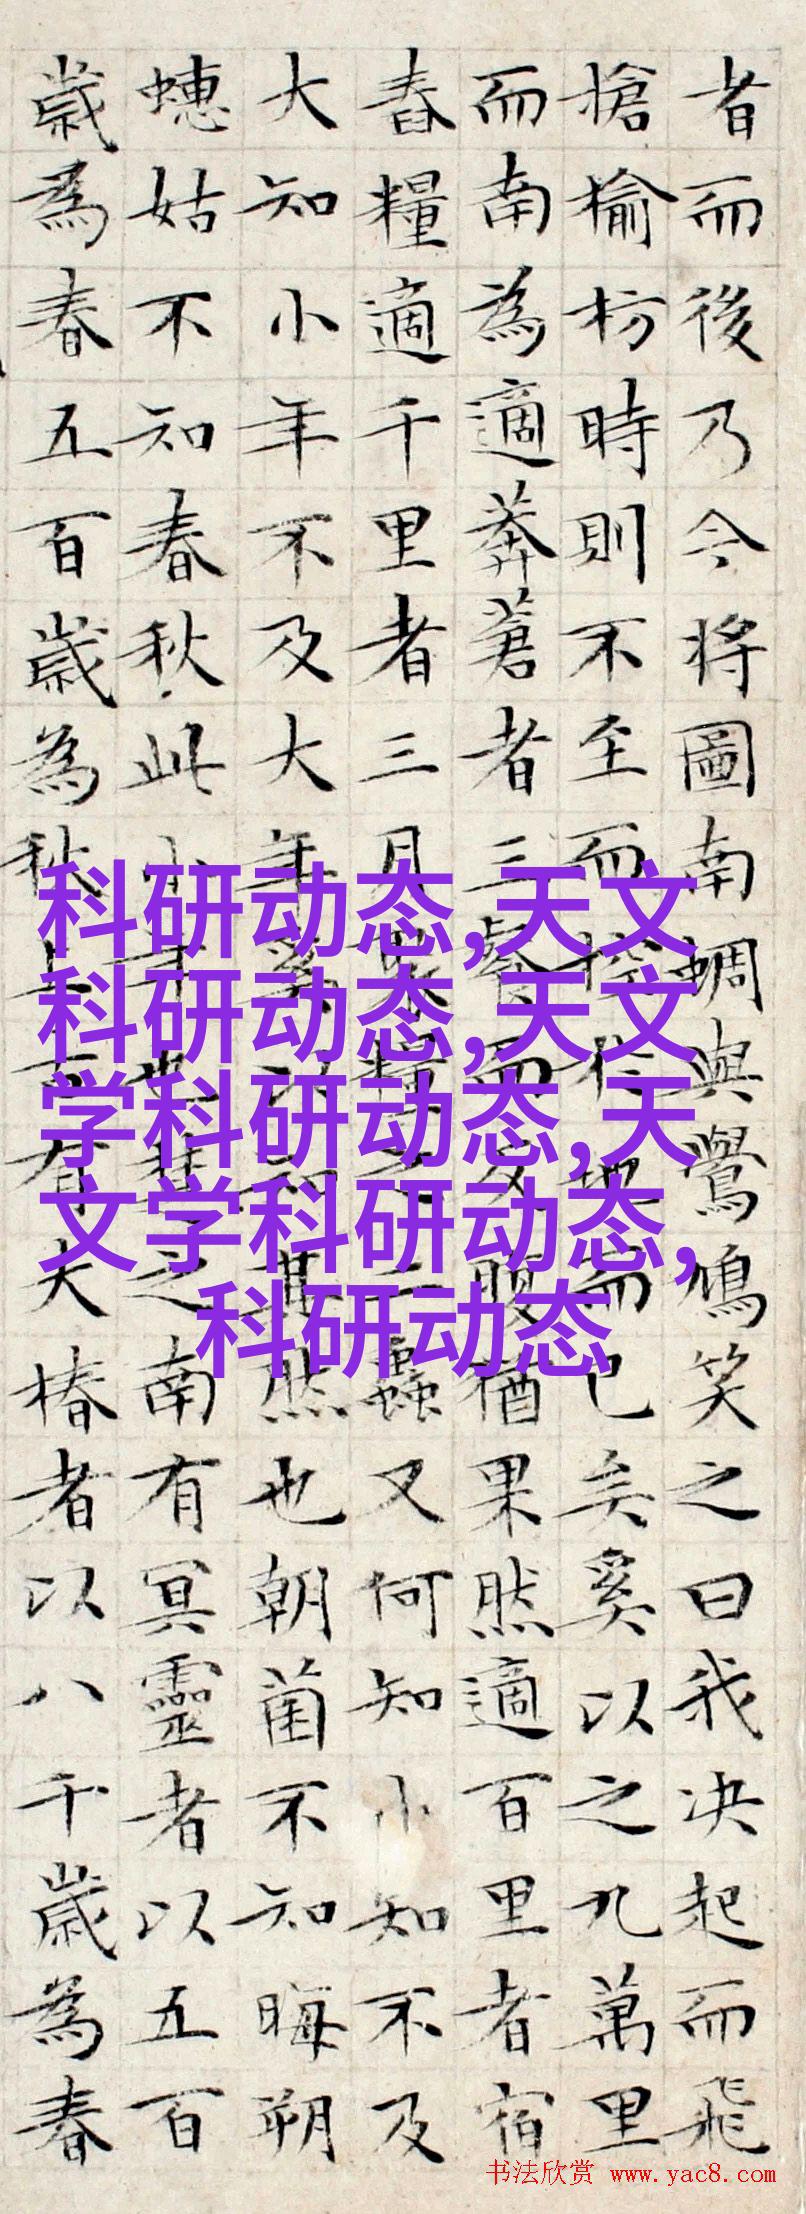 者而後乃今将圖南蜩與鷽鳩笑之曰我决起而飛
搶榆枋時則不至而控於地而已矣奚以之九萬里
而南為適莽蒼者三飡而反腹猶果然適百里者宿
舂糧適千里者三月聚糧之二蟲又何知小知不及
大知小年不及大年奚以知其然也朝菌不知晦朔
蟪姑不知春秋此小年也楚之南有冥靈者以五百
歲為春五百歲為秋上古有大椿者以八千歲為春
科研动态,天文
科研动态,天文
学科研动态,天
文学科研动态,
科研动态
书法欣赏 www.yac8.com